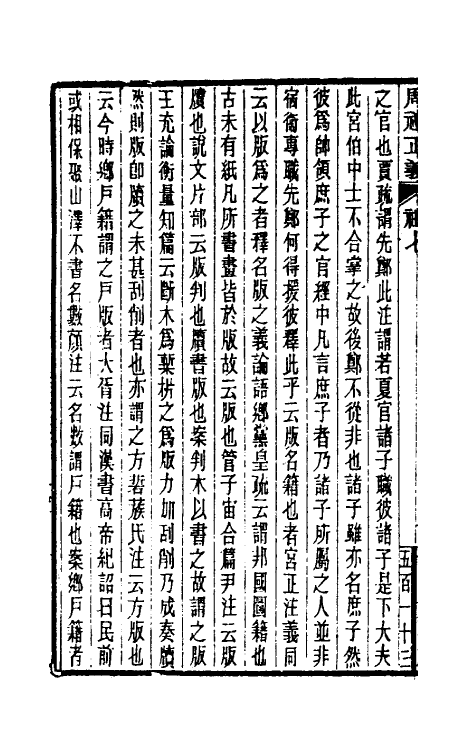 周禮正義 卷七
五百一十三
之官也賈疏謂先鄭此注謂若夏官諸子職彼諸子是下大夫
此宮伯中士不合宰之故後鄭不從非也諸子雖亦名庶子然
彼爲帥領庶子之官經中凡言庶子者乃諸子所屬之人並非
宿衞專職先鄭何得援彼釋此乎云版名籍也者宮正注義同
云以版爲之者釋名版之義論語鄉黨皇疏云謂邦國圖籍也
古未有紙凡所書畫皆於版故云版也管子宙合篇尹注云版
牘也說文片部云版判也牘書版也案判木以書之故謂之版
王充論衡量知篇云斷木爲槧㭊之爲版力加刮削乃成奏牘
然則版卽牘之未甚刮削者也亦謂之方硩蔟氏注云方版也
云今時鄉戶籍謂之戶版者大胥注同漢書高帝紀詔曰民前
或相保聚山澤不書名數顏注云名數謂戶籍也案鄉戶籍者